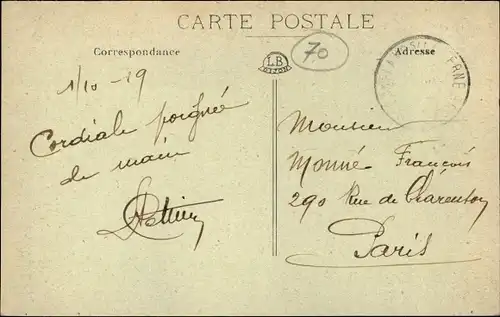 CARTE POSTALE
Correspondance
LB
70
Adresse
ERNE
1/10 - 19
Cordiale poignée
de main
Monsieur
Monné François
290 Rue de Charenton
Paris